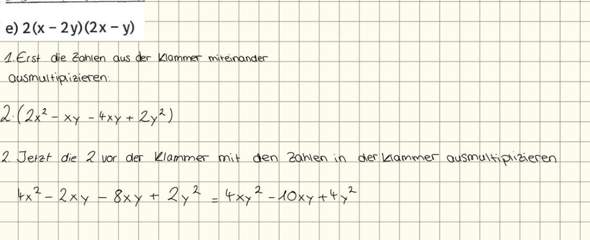 e) 2(x − 2y)(2x − y)
1. Erst die Zahlen aus der Klammer miteinander
ausmultiplizieren.
2·(2x² − xy − 4xy + 2y²)
2. Jetzt die 2 vor der Klammer mit den Zahlen in der Klammer ausmultiplizieren
4x² − 2xy − 8xy + 2y² = 4xy² − 10xy + 4y²